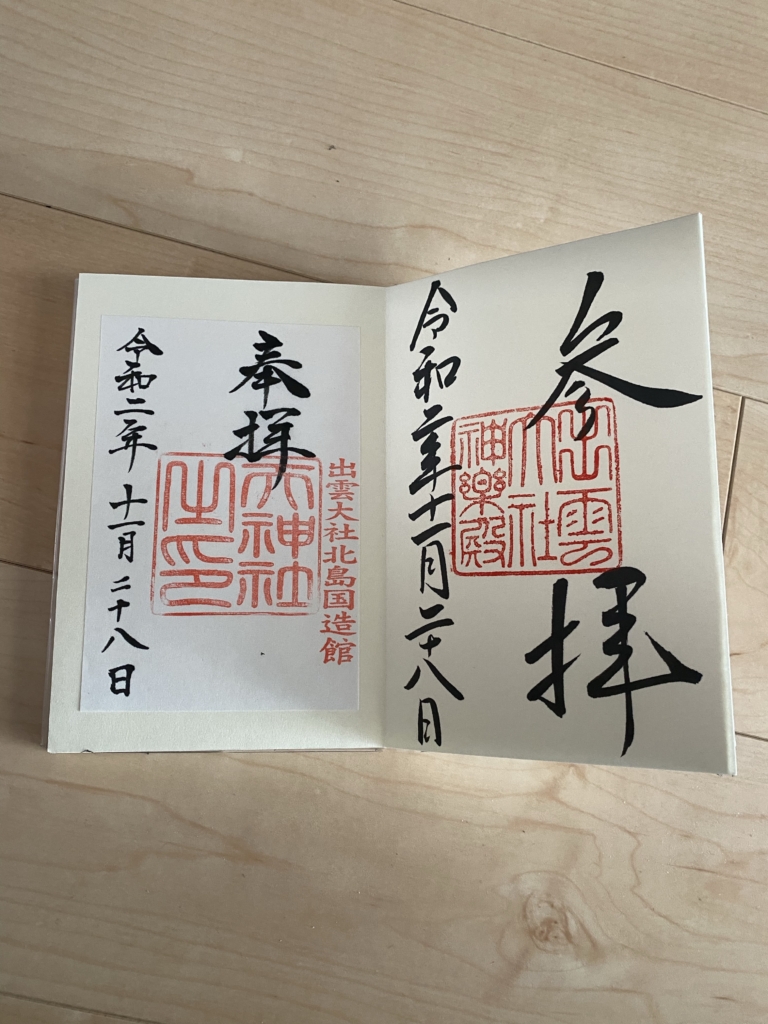 参拝
出雲
大社
神樂殿
令和二年十一月二十八日
出雲大社北島国造館
奉拝
天神社
之印
令和二年十一月二十八日